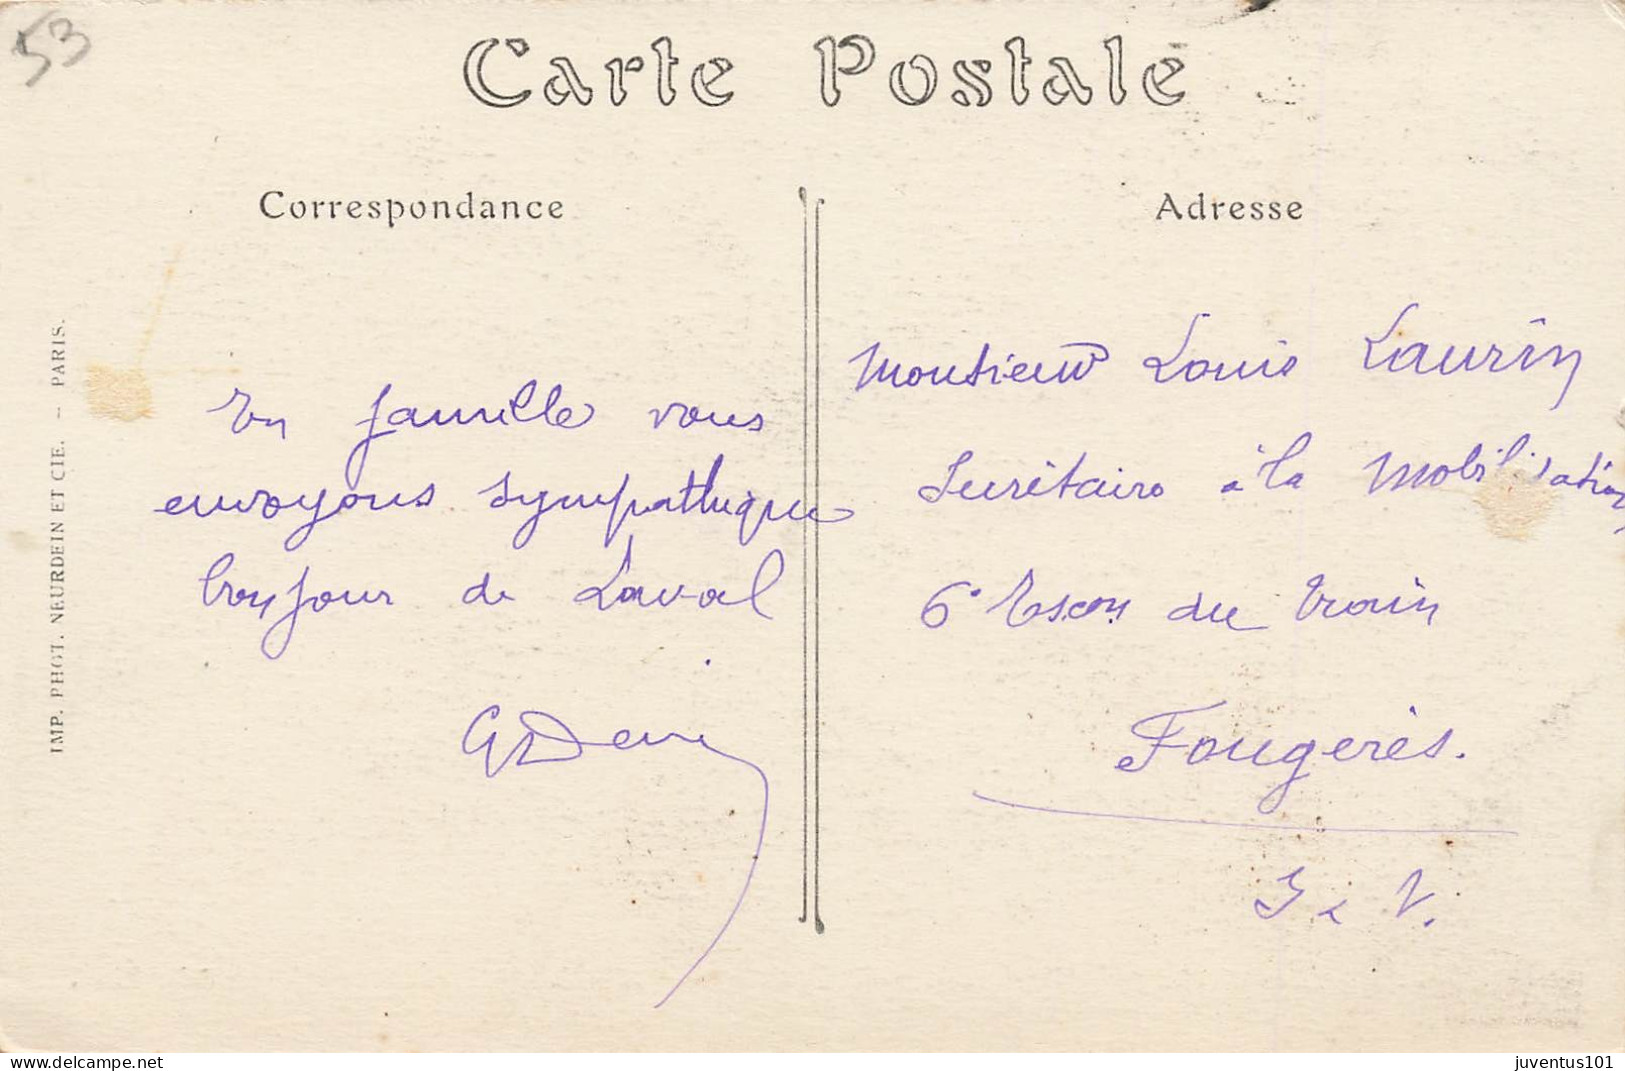 53
Carte Postale
Correspondance
Adresse
IMP. PHOT. NEURDEIN ET CIE. – PARIS.
En famille vous
envoyons sympathique
bonjour de Laval
GDenis
Monsieur Louis Laurin
Secrétaire à la Mobilisation
6e Escon du train
Fougères.
I & V.
delcampe.net
juventus101